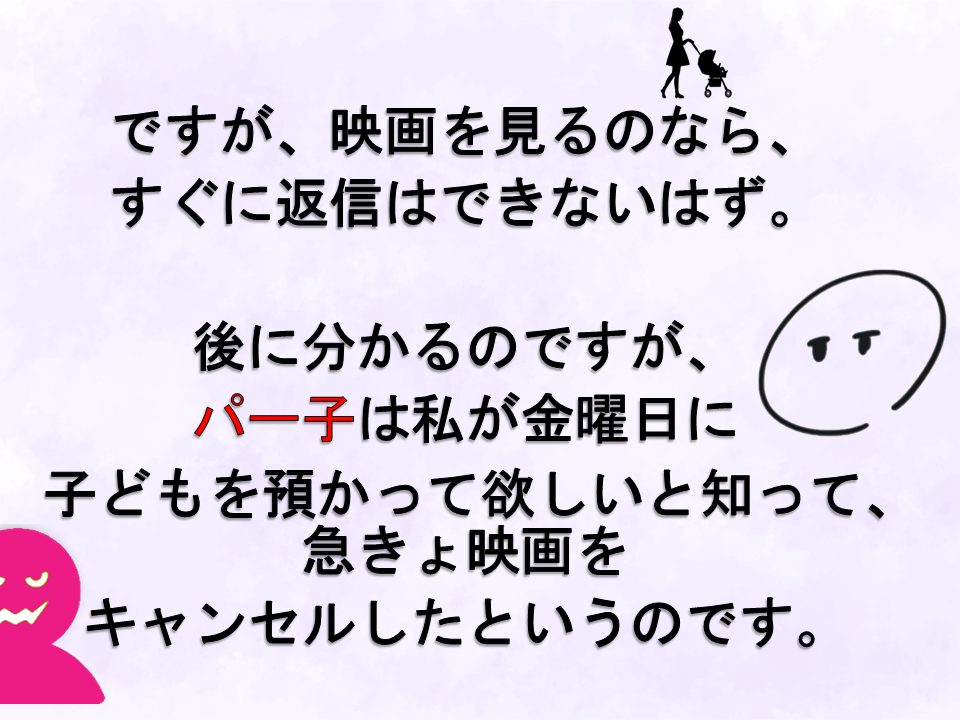 ですが、映画を見るのなら、
すぐに返信はできないはず。
後に分かるのですが、
パー子は私が金曜日に
子どもを預かって欲しいと知って、
急きょ映画を
キャンセルしたというのです。